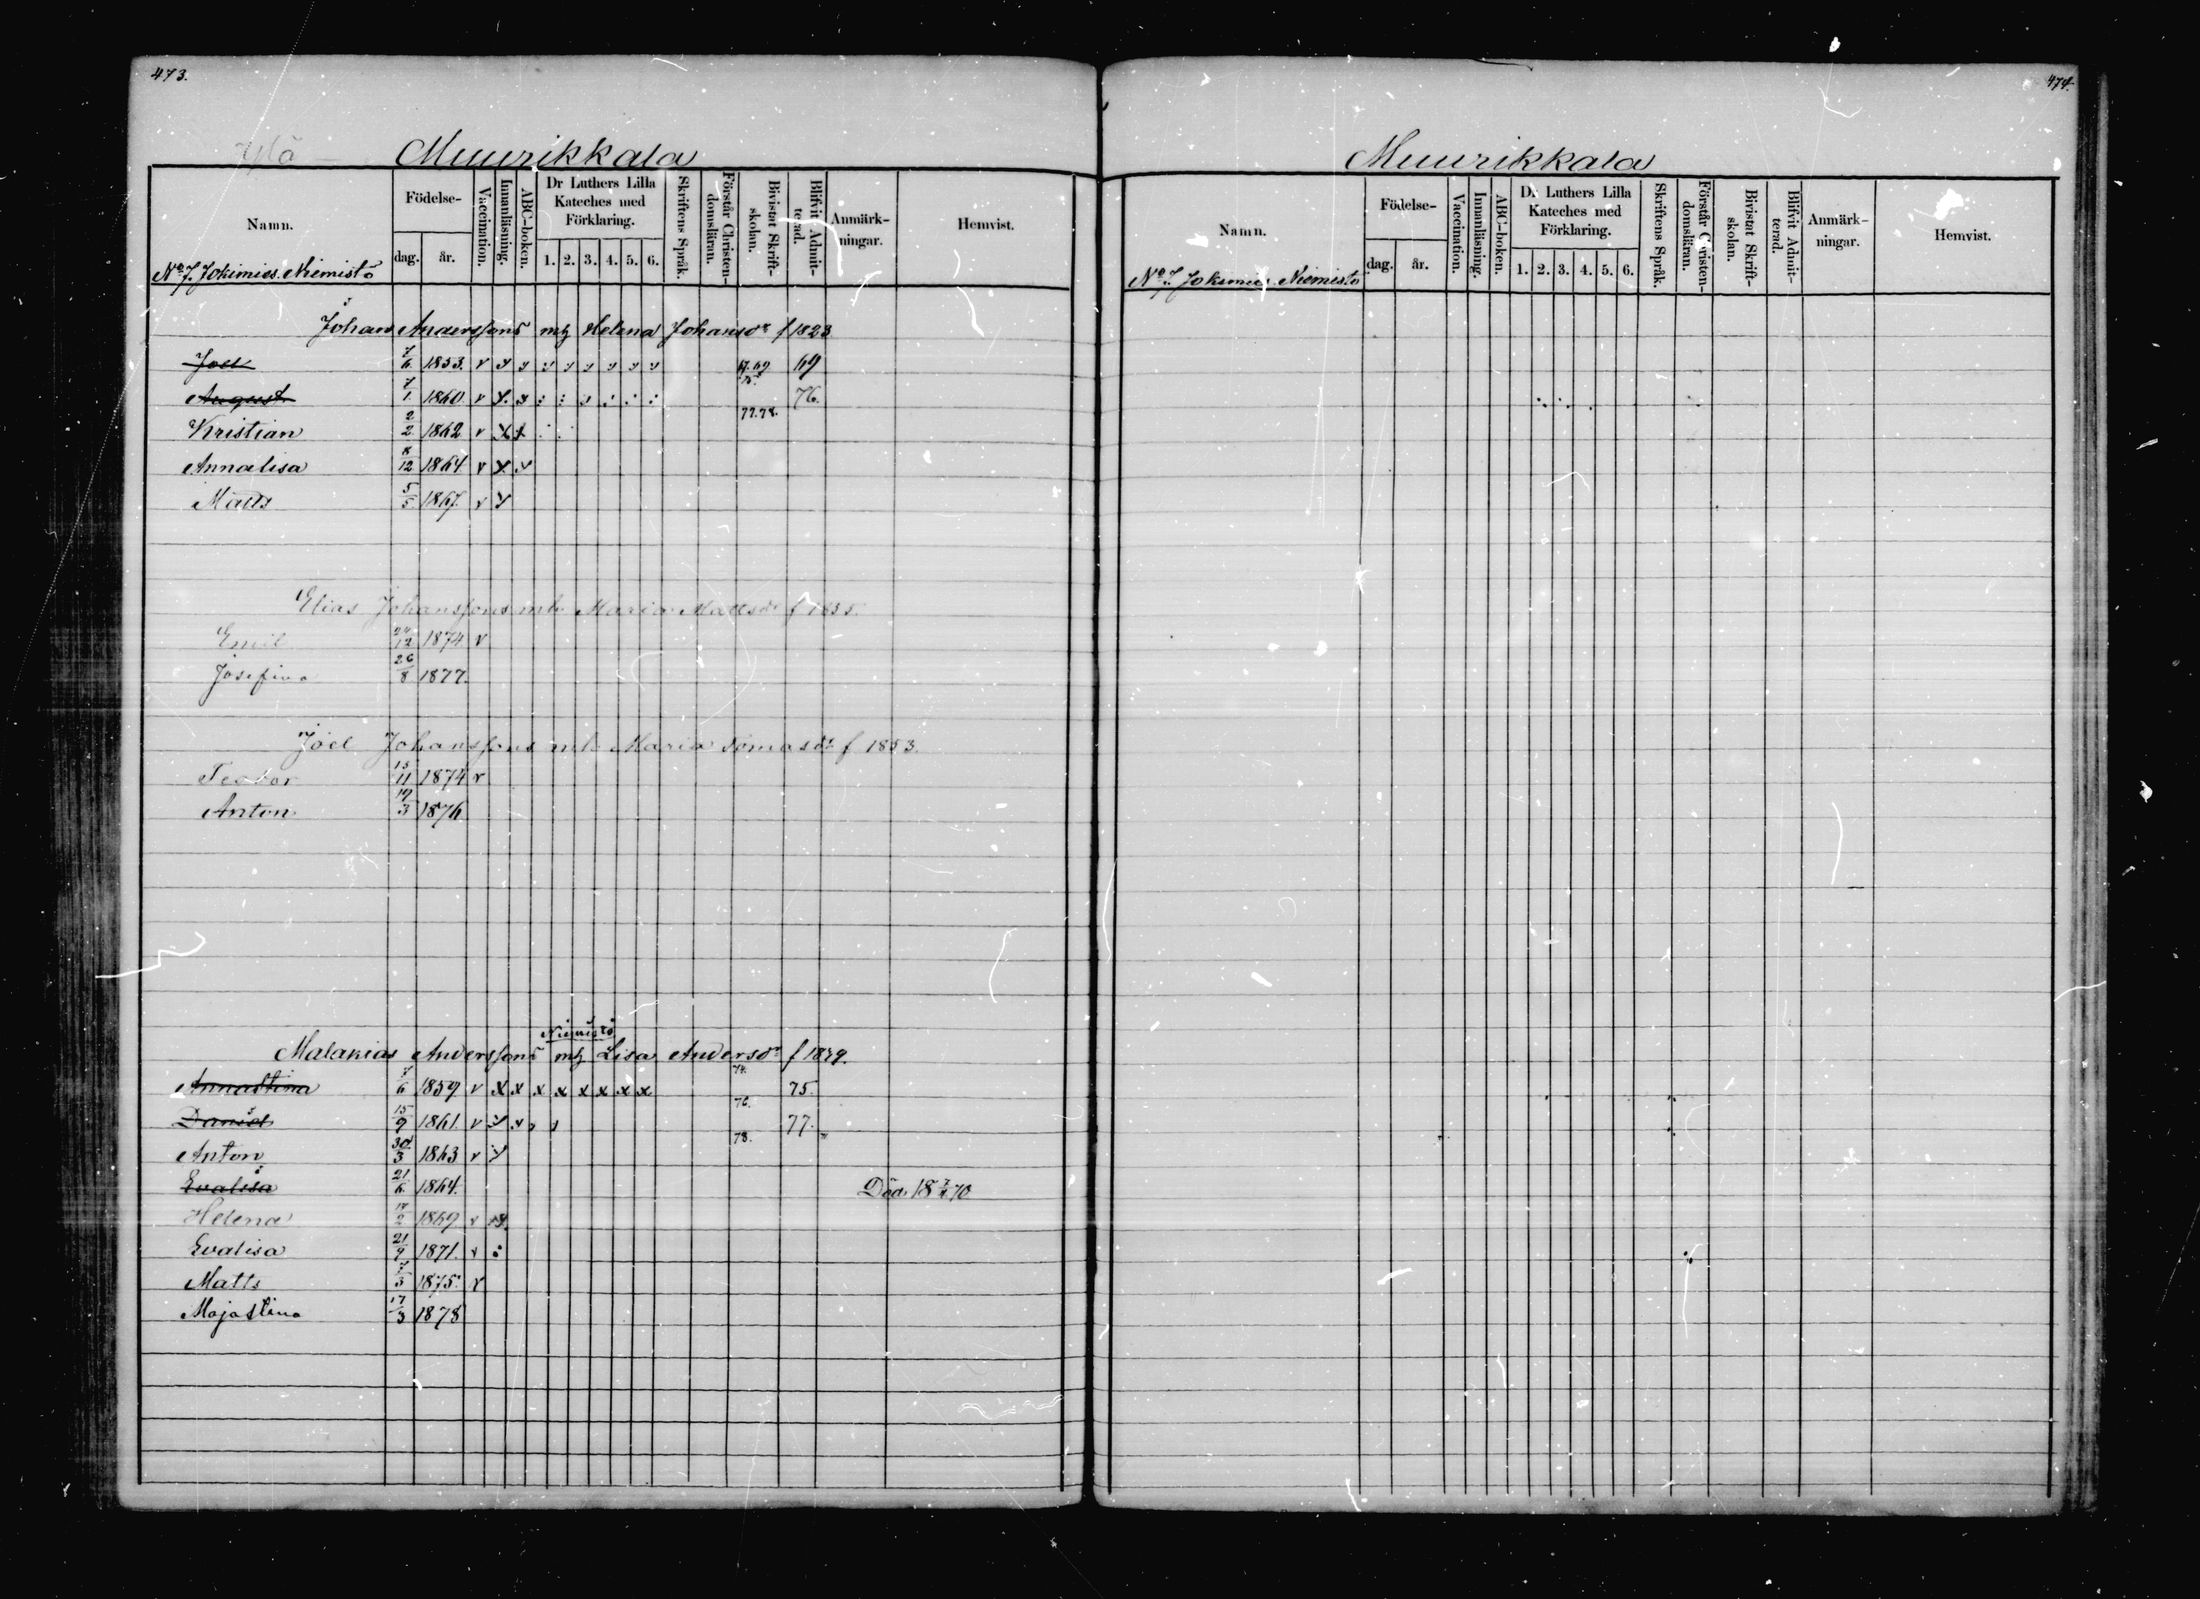 473.
Ylä Muurikkala
Namn. Födelse- dag. år. Vaccination. Innanläsning. ABC-boken. Dr Luthers Lilla Kateches med Förklaring. 1. 2. 3. 4. 5. 6. Skriftens Språk. Förstår Christen-domsläran. Bivistat Skrift-skolan. Blifvit Admit-terad. Anmärk-ningar. Hemvist.
No 7. Jokimies Niemistö
Johan Anderssons mh Helena Johansdr f 1823
Joel 7/6 1853. v 69
August 7/1 1860. v 76.
77.78.
Kristian 2/2 1862 v
Annalisa 8/12 1864 v
Matts 5/5 1867. v
Elias Johanssons mh Maria Mattsdr f 1855.
Emil 24/12 1874 v
Josefina 26/8 1877.
Joel Johanssons mh Maria Tomasdr f 1853.
Teodor 15/11 1874 v
Anton 19/3 1876
Niemistö
Malakias Anderssons mh Lisa Andersdr f 1839.
74.
Annastina 7/6 1859 v x x x x x x x x 75.
76.
Daniel 15/9 1861. v 77.
78.
Anton 30/3 1863 v
Evalisa 21/6 1864. Död 18 7/4 70
Helena 18/2 1869 v
Evalisa 21/9 1871. v
Matts 7/3 1875. v
Majastina 17/3 1878
474.
Muurikkala
Namn. Födelse- dag. år. Vaccination. Innanläsning. ABC-boken. Dr Luthers Lilla Kateches med Förklaring. 1. 2. 3. 4. 5. 6. Skriftens Språk. Förstår Christen-domsläran. Bivistat Skrift-skolan. Blifvit Admit-terad. Anmärk-ningar. Hemvist.
No 7. Jokimies Niemistö